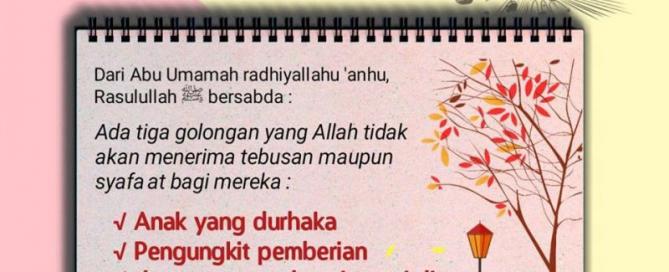 Dari Abu Umamah radhiyallahu 'anhu,
Rasulullah ﷺ bersabda :
Ada tiga golongan yang Allah tidak
akan menerima tebusan maupun
syafa at bagi mereka :
√ Anak yang durhaka
√ Pengungkit pemberian